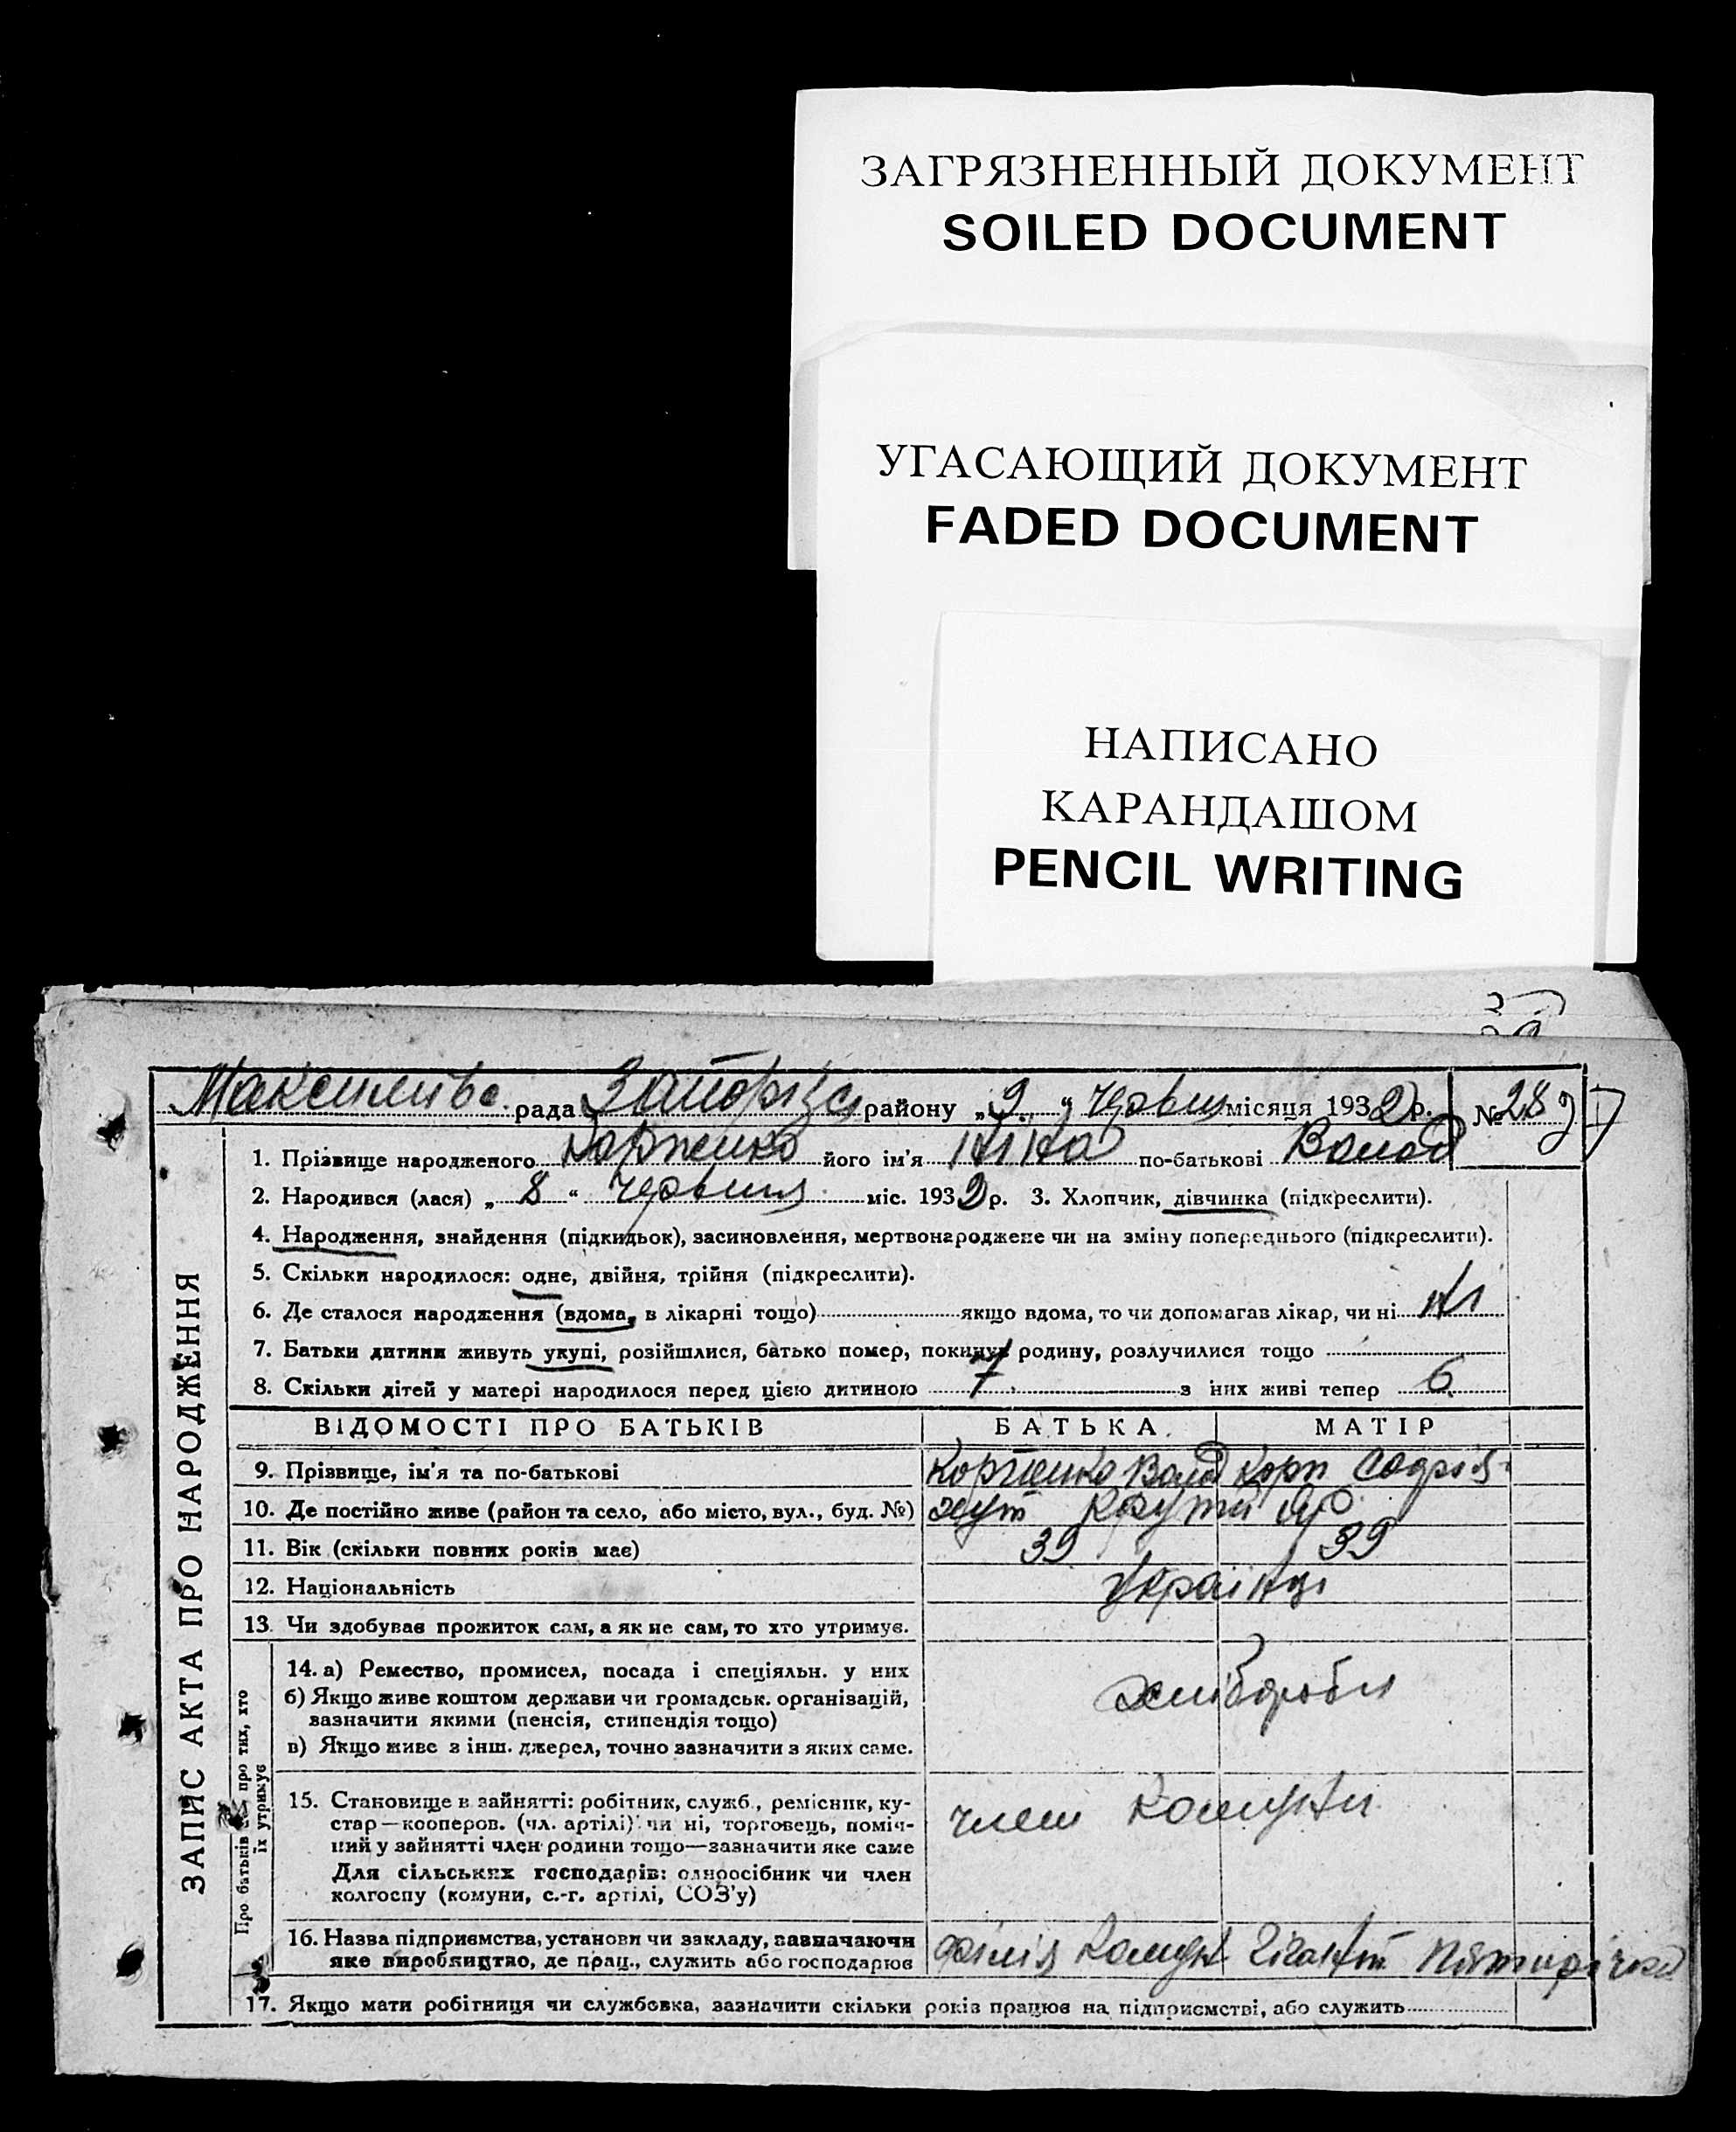 ЗАГРЯЗНЕННЫЙ ДОКУМЕНТ
SOILED DOCUMENT
УГАСАЮЩИЙ ДОКУМЕНТ
FADED DOCUMENT
НАПИСАНО
КАРАНДАШОМ
PENCIL WRITING
рада району „9“ Червня місяця 1932 р. № 289
1. Прізвище народженого його ім'я Ніна по-батькові Волод
2. Народився (лася) „8“ Червня міс. 1932 р. 3. Хлопчик, дівчинка (підкреслити).
4. Народження, знайдення (підкидьок), засиновлення, мертвонароджене чи на зміну попереднього (підкреслити).
5. Скільки народилося: одне, двійня, трійня (підкреслити).
6. Де сталося народження (вдома, в лікарні тощо) якщо вдома, то чи допомагав лікар, чи ні ні
7. Батьки дитини живуть укупі, розійшлися, батько помер, покинув родину, розлучилися тощо
8. Скільки дітей у матері народилося перед цією дитиною 7 з них живі тепер 6
ЗАПИС АКТА ПРО НАРОДЖЕННЯ
ВІДОМОСТІ ПРО БАТЬКІВ БАТЬКА МАТІР
9. Прізвище, ім'я та по-батькові Волод
10. Де постійно живе (район та село, або місто, вул., буд. №) хут
11. Вік (скільки повних років має) 39 39
12. Національність Українці
13. Чи здобуває прожиток сам, а як не сам, то хто утримує.
Про батьків про тих, хто
їх утримує
14. а) Ремество, промисел, посада і спеціяльн. у них
б) Якщо живе коштом держави чи громадськ. організацій,
зазначити якими (пенсія, стипендія тощо)
в) Якщо живе з інш. джерел, точно зазначити з яких саме.
хлібороби
15. Становище в зайнятті: робітник, служб., ремісник, ку-
стар—кооперов. (чл. артілі) чи ні, торговець, поміч-
ний у зайнятті член родини тощо—зазначити яке саме
Для сільських господарів: одноосібник чи член
колгоспу (комуни, с.-г. артілі, СОЗ'у)
член Комуни
16. Назва підприємства, установи чи закладу, зазначаючи
яке виробництво, де прац., служить або господарює
філія Комун Гігант
17. Якщо мати робітниця чи службовка, зазначити скільки років працює на підприємстві, або служить